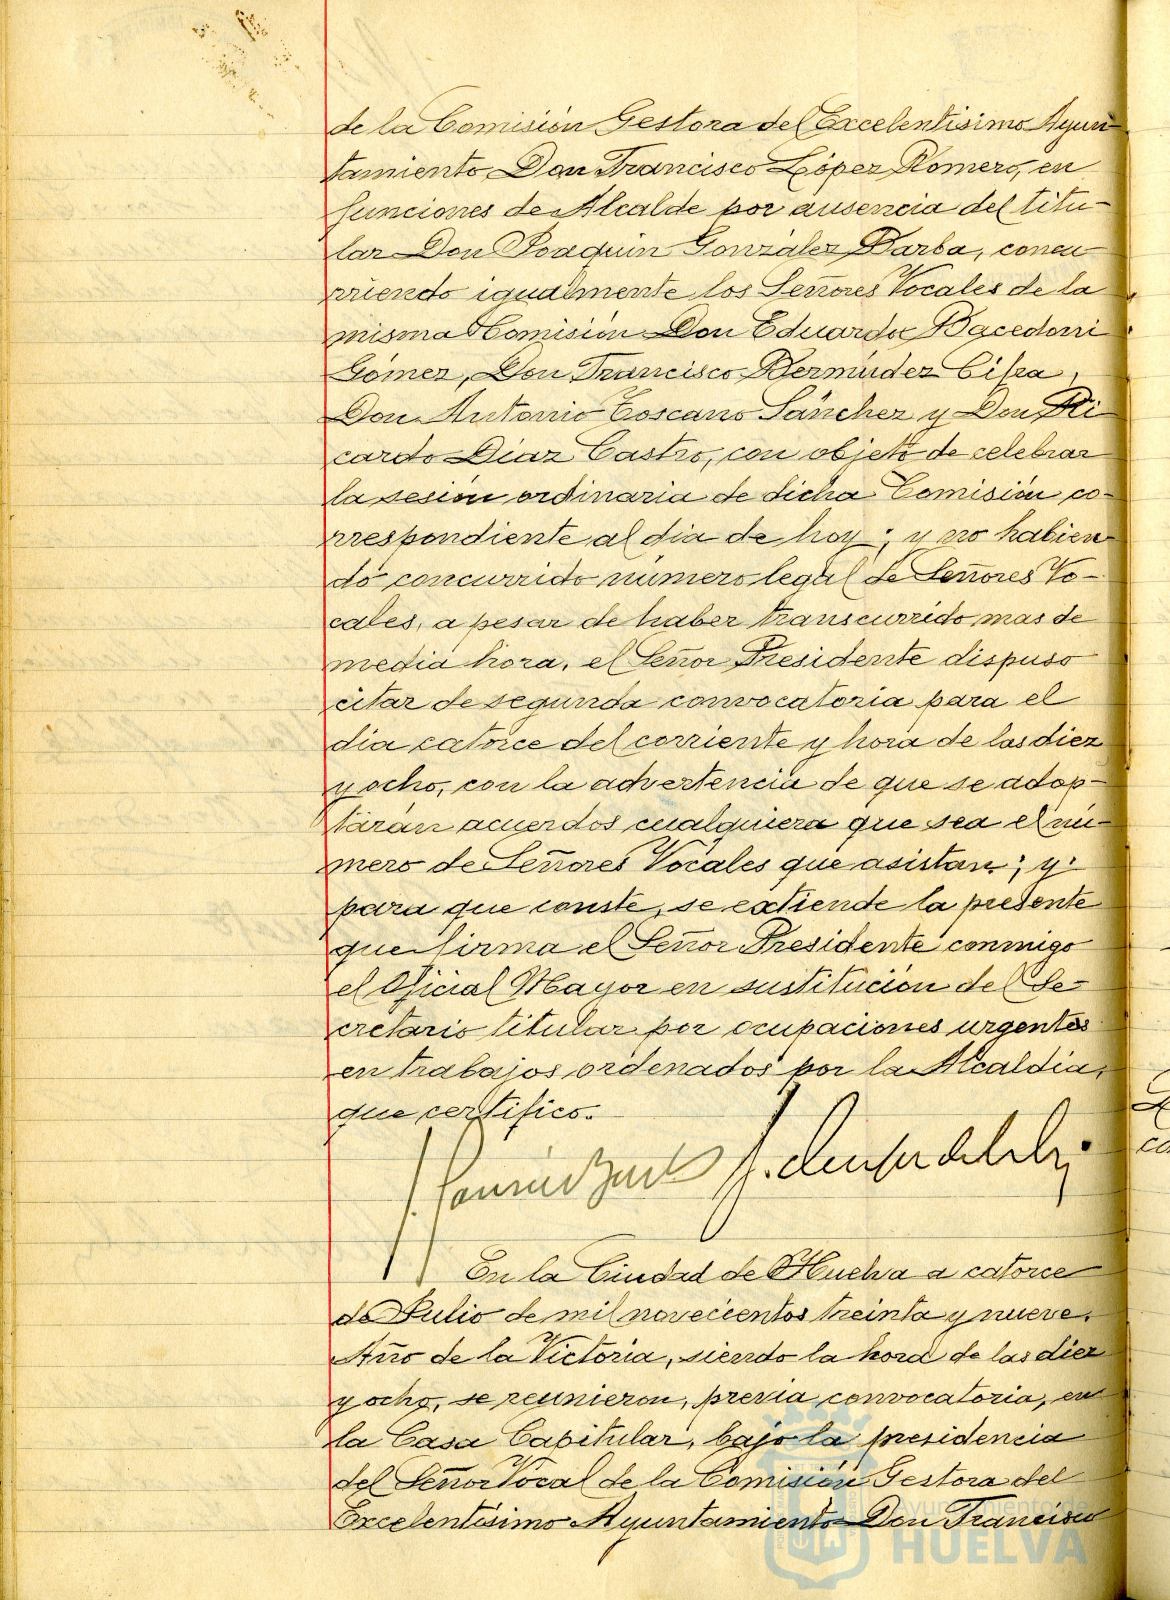 de la Comisión Gestora del Excelentisimo Ayun-
tamiento, Don Francisco López Romero, en
funciones de Alcalde por ausencia del titu-
lar Don Joaquin González Barba, concu
rriendo igualmente los Señores Vocales de la
misma Comisión Don Eduardo Bacedorri
Gómez, Don Francisco Bermúdez Cifra,
Don Antonio Toscano Sánchez y Don Ri
cardo Diaz Castro, con objeto de celebrar
la sesión ordinaria de dicha Comisión co-
rrespondiente al dia de hoy; y no habien-
do concurrido número legal de Señores Vo-
cales, a pesar de haber transcurrido mas de
media hora, el Señor Presidente dispuso
citar de segunda convocatoria para el
dia catorce del corriente y hora de las diez
y ocho, con la advertencia de que se adop-
tarán acuerdos cualquiera que sea el nú-
mero de Señores Vocales que asistan; y
para que conste, se extiende la presente
que firma el Señor Presidente conmigo
el Oficial Mayor en sustitución del Se-
cretario titular por ocupaciones urgentes
en trabajos ordenados por la Alcaldia,
que certifico.
En la Ciudad de Huelva a catorce
de Julio de mil novecientos treinta y nueve.
Año de la Victoria, siendo la hora de las diez
y ocho, se reunieron, previa convocatoria, en
la Casa Capitular, bajo la presidencia
del Señor Vocal de la Comisión Gestora del
Excelentísimo Ayuntamiento Don Francisco
Ayuntamiento de
HUELVA